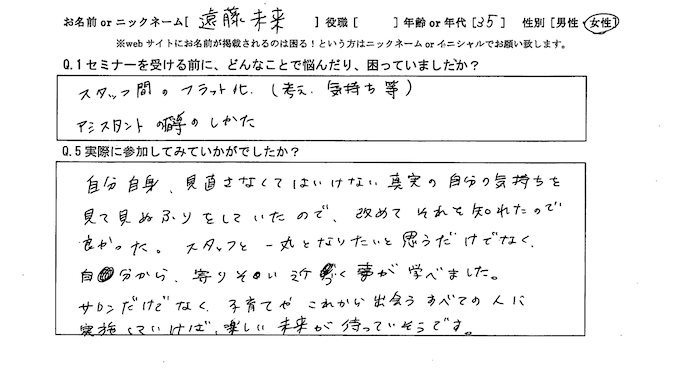 お名前 or ニックネーム[ 遠藤 未来 ] 役職 [ ] 年齢 or 年代 [35] 性別 [男性・女性]
※web サイトにお名前が掲載されるのは困る！という方はニックネーム or イニシャルでお願い致します。
Q.1 セミナーを受ける前に、どんなことで悩んだり、困っていましたか？
スタッフ間のフラット化.(考え.気持ち等)
アシスタントの のしかた
Q.5 実際に参加してみていかがでしたか？
自分自身、見直さなくてはいけない真実の自分の気持ちを
見て見ぬふりをしていたので、改めてそれを知れたので
良かった。スタッフと一丸となりたいと思うだけでなく、
自分から、寄りそい近づく事が学べました。
サロンだけでなく、子育てやこれから出会うすべての人に
実施していけば、楽しい未来が待っていそうです。